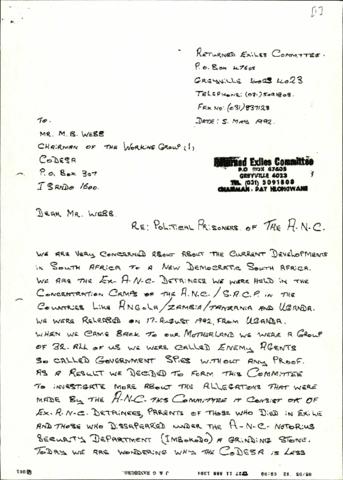 [1]
RETURNED EXILES COMMITTEE.
P.O. BOX 47605
GREYVILLE 4023
TELEPHONE: (031) 5091808.
FAX NO: (031) 837123
DATE: 5 MAY 1992.
TO.
MR. M.B. WEBB
CHAIRMAN OF THE WORKING GROUP (1)
CODESA
P.O. BOX 307
ISANDO 1600.
Returned Exiles Committee
P.O BOX 47605
GREYVILLE 4023
TEL (031) 5091808
CHAIRMAN - PAT HLONGWANE
DEAR MR. WEBB.
RE: POLITICAL PRISONERS OF THE A.N.C.
WE ARE VERY CONCERNED ABOUT ABOUT THE CURRENT DEVELOPMENTS
IN SOUTH AFRICA TO A NEW DEMOCRATIC SOUTH AFRICA.
WE ARE THE EX-A.N.C DETAINEES WE WERE HELD IN THE
CONCENTRATION CAMPS OF THE A.N.C./S.A.C.P. IN THE
COUNTRIES LIKE ANGOLA/ZAMBIA/TANZANIA AND UGANDA.
WE WERE RELEASED ON 17. AUGUST FROM UGANDA.
WHEN WE CAME BACK TO OUR MOTHERLAND WE WERE A GROUP
OF 32. ALL OF US WE WERE CALLED ENEMY AGENTS
SO CALLED GOVERNMENT SPIES WITHOUT ANY PROOF.
AS A RESULT WE DECIDED TO FORM THIS COMMITTEE
TO INVESTIGATE MORE ABOUT THE ALLEGATIONS THAT WERE
MADE BY THE A.N.C. THIS COMMITTEE IT CONSIST OF
EX. A.N.C. DETAINEES, PARENTS OF THOSE WHO DIED IN EXILE
AND THOSE WHO DISSAPEARED UNDER THE A-N-C. NOTORIUS
SECURITY DEPARTMENT (IMBOKODO) A GRINDING STONE.
TODAY WE ARE WONDERING WHY THE CODESA IS LESS